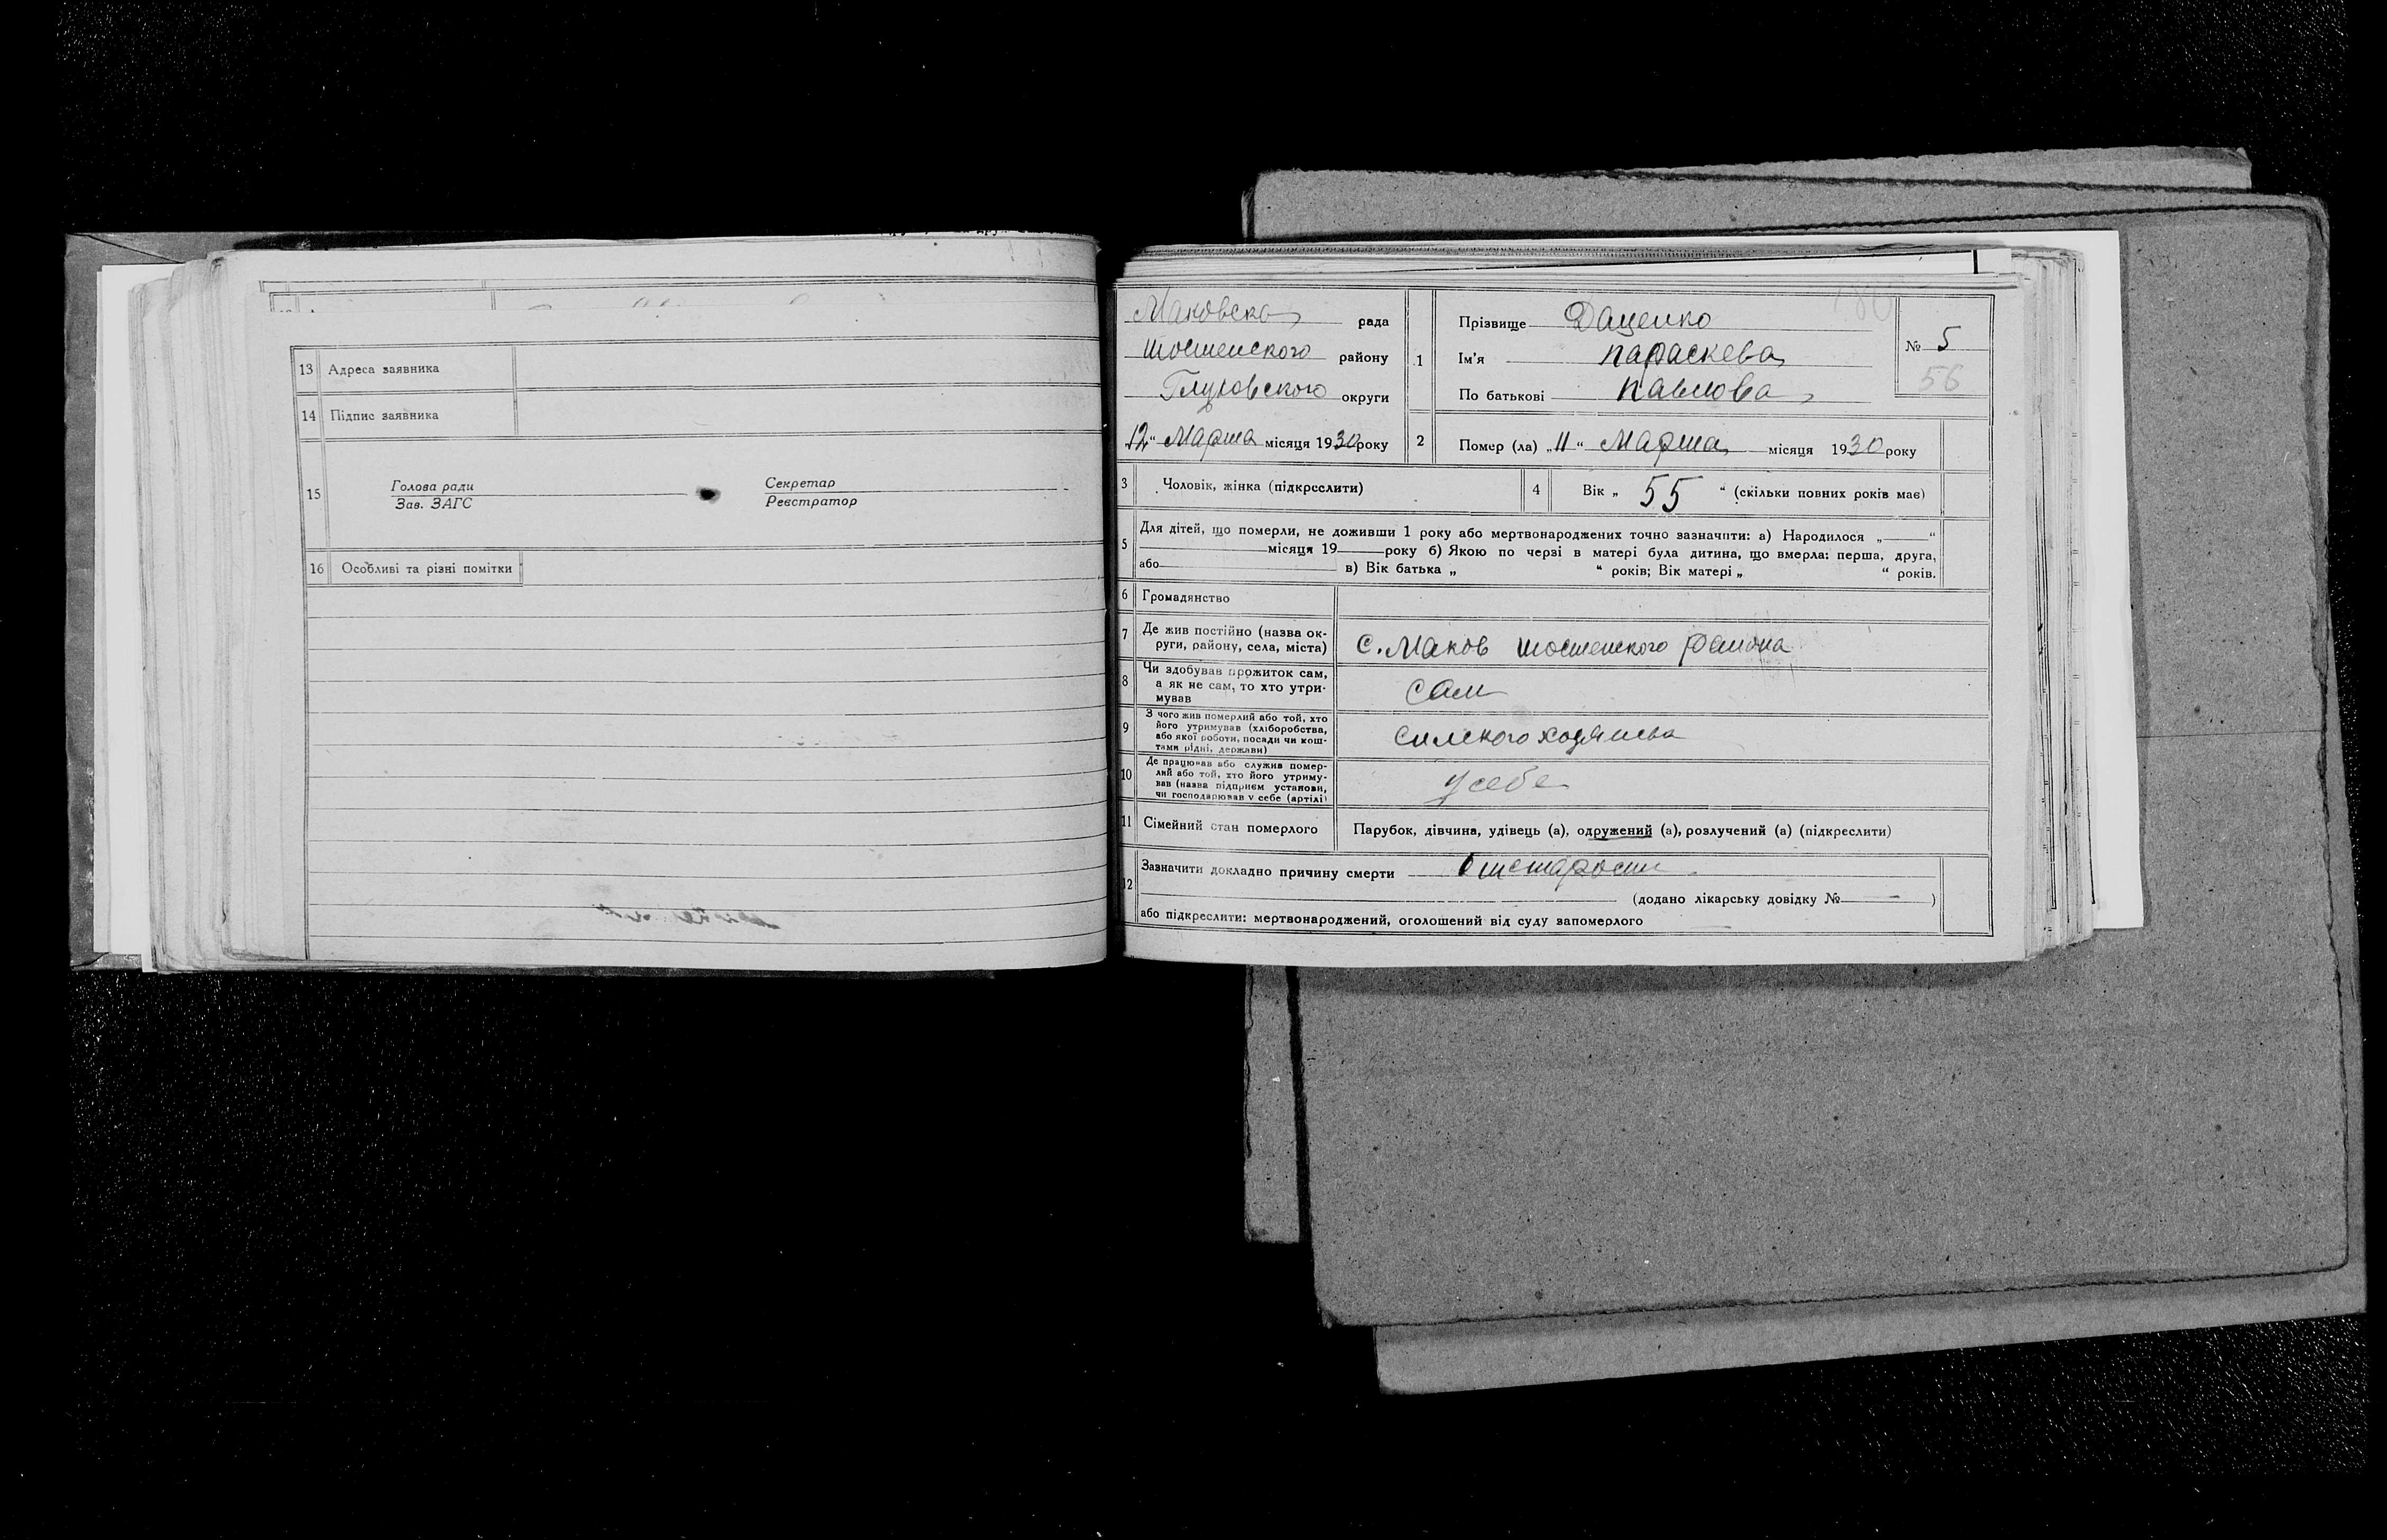 13 Адреса заявника
14 Підпис заявника
15 Голова ради Секретар
Зав. ЗАГС Реєстратор
16 Особливі та різні помітки
Маковска рада
Шостенского району
Глуховского округи
12 " Марта місяця 1930 року
1 Прізвище Даценко
Ім'я Параскева
По батькові Павлова
№ 5
56
2 Помер (ла) „ 11 " Марта місяця 1930 року
3 Чоловік, жінка (підкреслити)
4 Вік „ 55 " (скільки повних років має)
5 Для дітей, що померли, не доживши 1 року або мертвонароджених точно зазначити: а) Народилося „ "
місяця 19 року б) Якою по черзі в матері була дитина, що вмерла: перша, друга,
або в) Вік батька „ " років; Вік матері „ " років.
6 Громадянство
7 Де жив постійно (назва ок-
руги, району, села, міста)
с. Маков Шостенского района
8 Чи здобував прожиток сам,
а як не сам, то хто утри-
мував
сам
9 З чого жив померлий або той, хто
його утримував (хліборобства,
або якої роботи, посади чи кош-
тами рідні, держави)
силского хозяиства
10 Де працював або служив помер-
лий або той, хто його утриму-
вав (назва підприєм установи,
чи господарював у себе (артілі)
у себе
11 Сімейний стан померлого
Парубок, дівчина, удівець (а), одружений (а), розлучений (а) (підкреслити)
12 Зазначити докладно причину смерти От старости
(додано лікарську довідку № — )
або підкреслити: мертвонароджений, оголошений від суду запомерлого